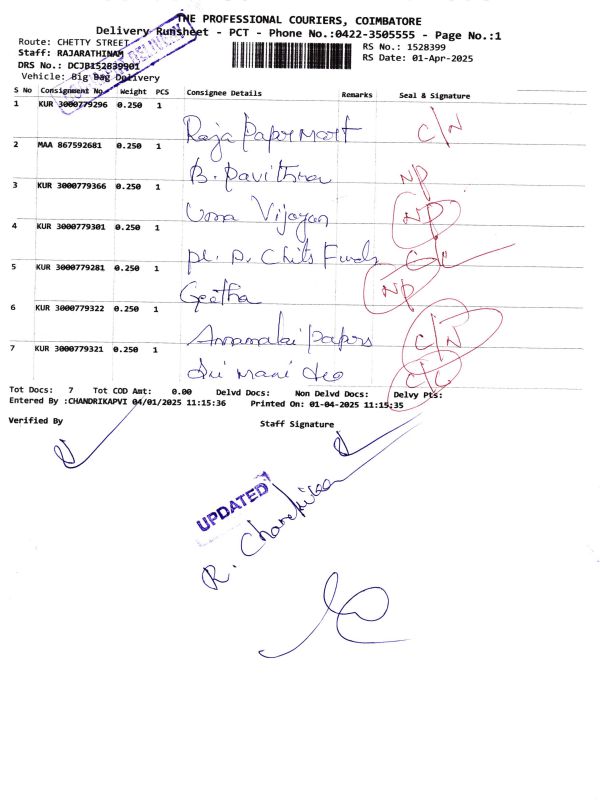 THE PROFESSIONAL COURIERS, COIMBATORE
Delivery Runsheet - PCT - Phone No.:0422-3505555 - Page No.:1
Route: CHETTY STREET RS No.: 1528399
Staff: RAJARATHINAM RS Date: 01-Apr-2025
DRS No.: DCJB152839901
Vehicle: Big Bag Delivery
DELIVERY
S No Consignment No. Weight PCS Consignee Details Remarks Seal & Signature
1 KUR 3000779296 0.250 1
Raja Paper Mart C/N
2 MAA 867592681 0.250 1
B. Pavithra NP
3 KUR 3000779366 0.250 1
Uma Vijayan NP
4 KUR 3000779301 0.250 1
P. Chits Funds
5 KUR 3000779281 0.250 1
Geetha NP
6 KUR 3000779322 0.250 1
Annamalai Papers C/N
7 KUR 3000779321 0.250 1
Sri Mani C/L
Tot Docs: 7 Tot COD Amt: 0.00 Delvd Docs: Non Delvd Docs: Delvy Pts:
Entered By :CHANDRIKAPVI 04/01/2025 11:15:36 Printed On: 01-04-2025 11:15:35
Verified By Staff Signature
UPDATED
R.